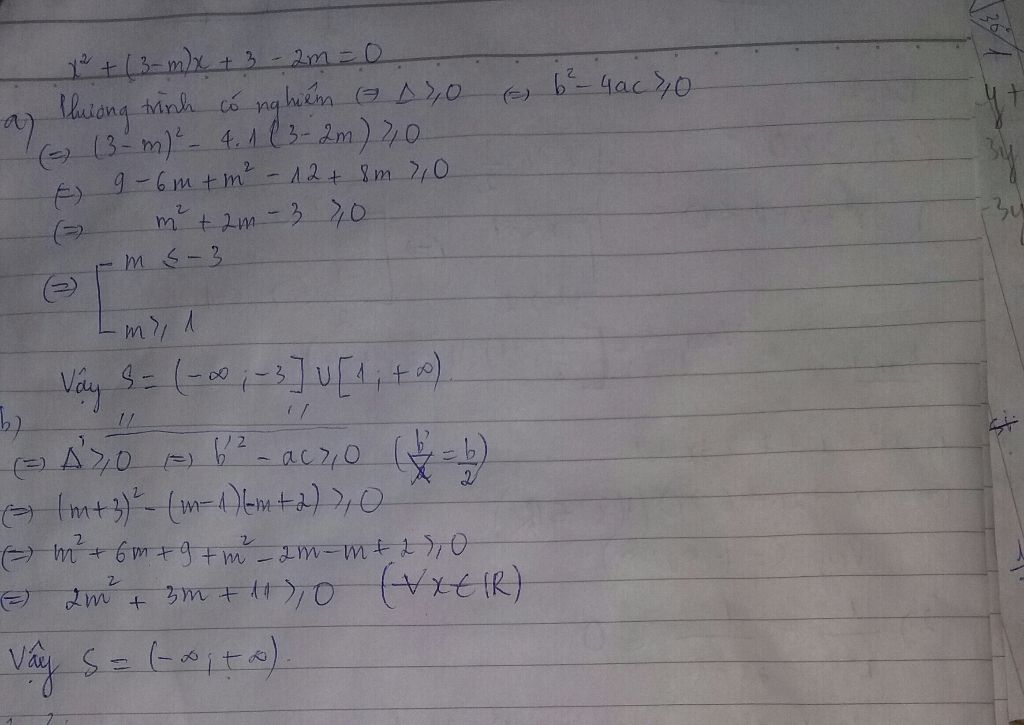 x² + (3-m)x + 3 - 2m = 0
a) Phương trình có nghiệm ⇔ Δ ≥ 0 ⇔ b² - 4ac ≥ 0
⇔ (3-m)² - 4.1(3-2m) ≥ 0
⇔ 9 - 6m + m² - 12 + 8m ≥ 0
⇔ m² + 2m - 3 ≥ 0
⇔ [ m ≤ -3
m ≥ 1
Vậy S = (-∞; -3] ∪ [1; +∞).
b) // //
⇔ Δ' ≥ 0 ⇔ b'² - ac ≥ 0 (b' = b/2)
⇔ (m+3)² - (m-1)(-m+2) ≥ 0
⇔ m² + 6m + 9 + m² - 2m - m + 2 ≥ 0
⇔ 2m² + 3m + 11 ≥ 0 (∀x ∈ ℝ)
Vậy S = (-∞; +∞).
36
1
y +
3y
-3y